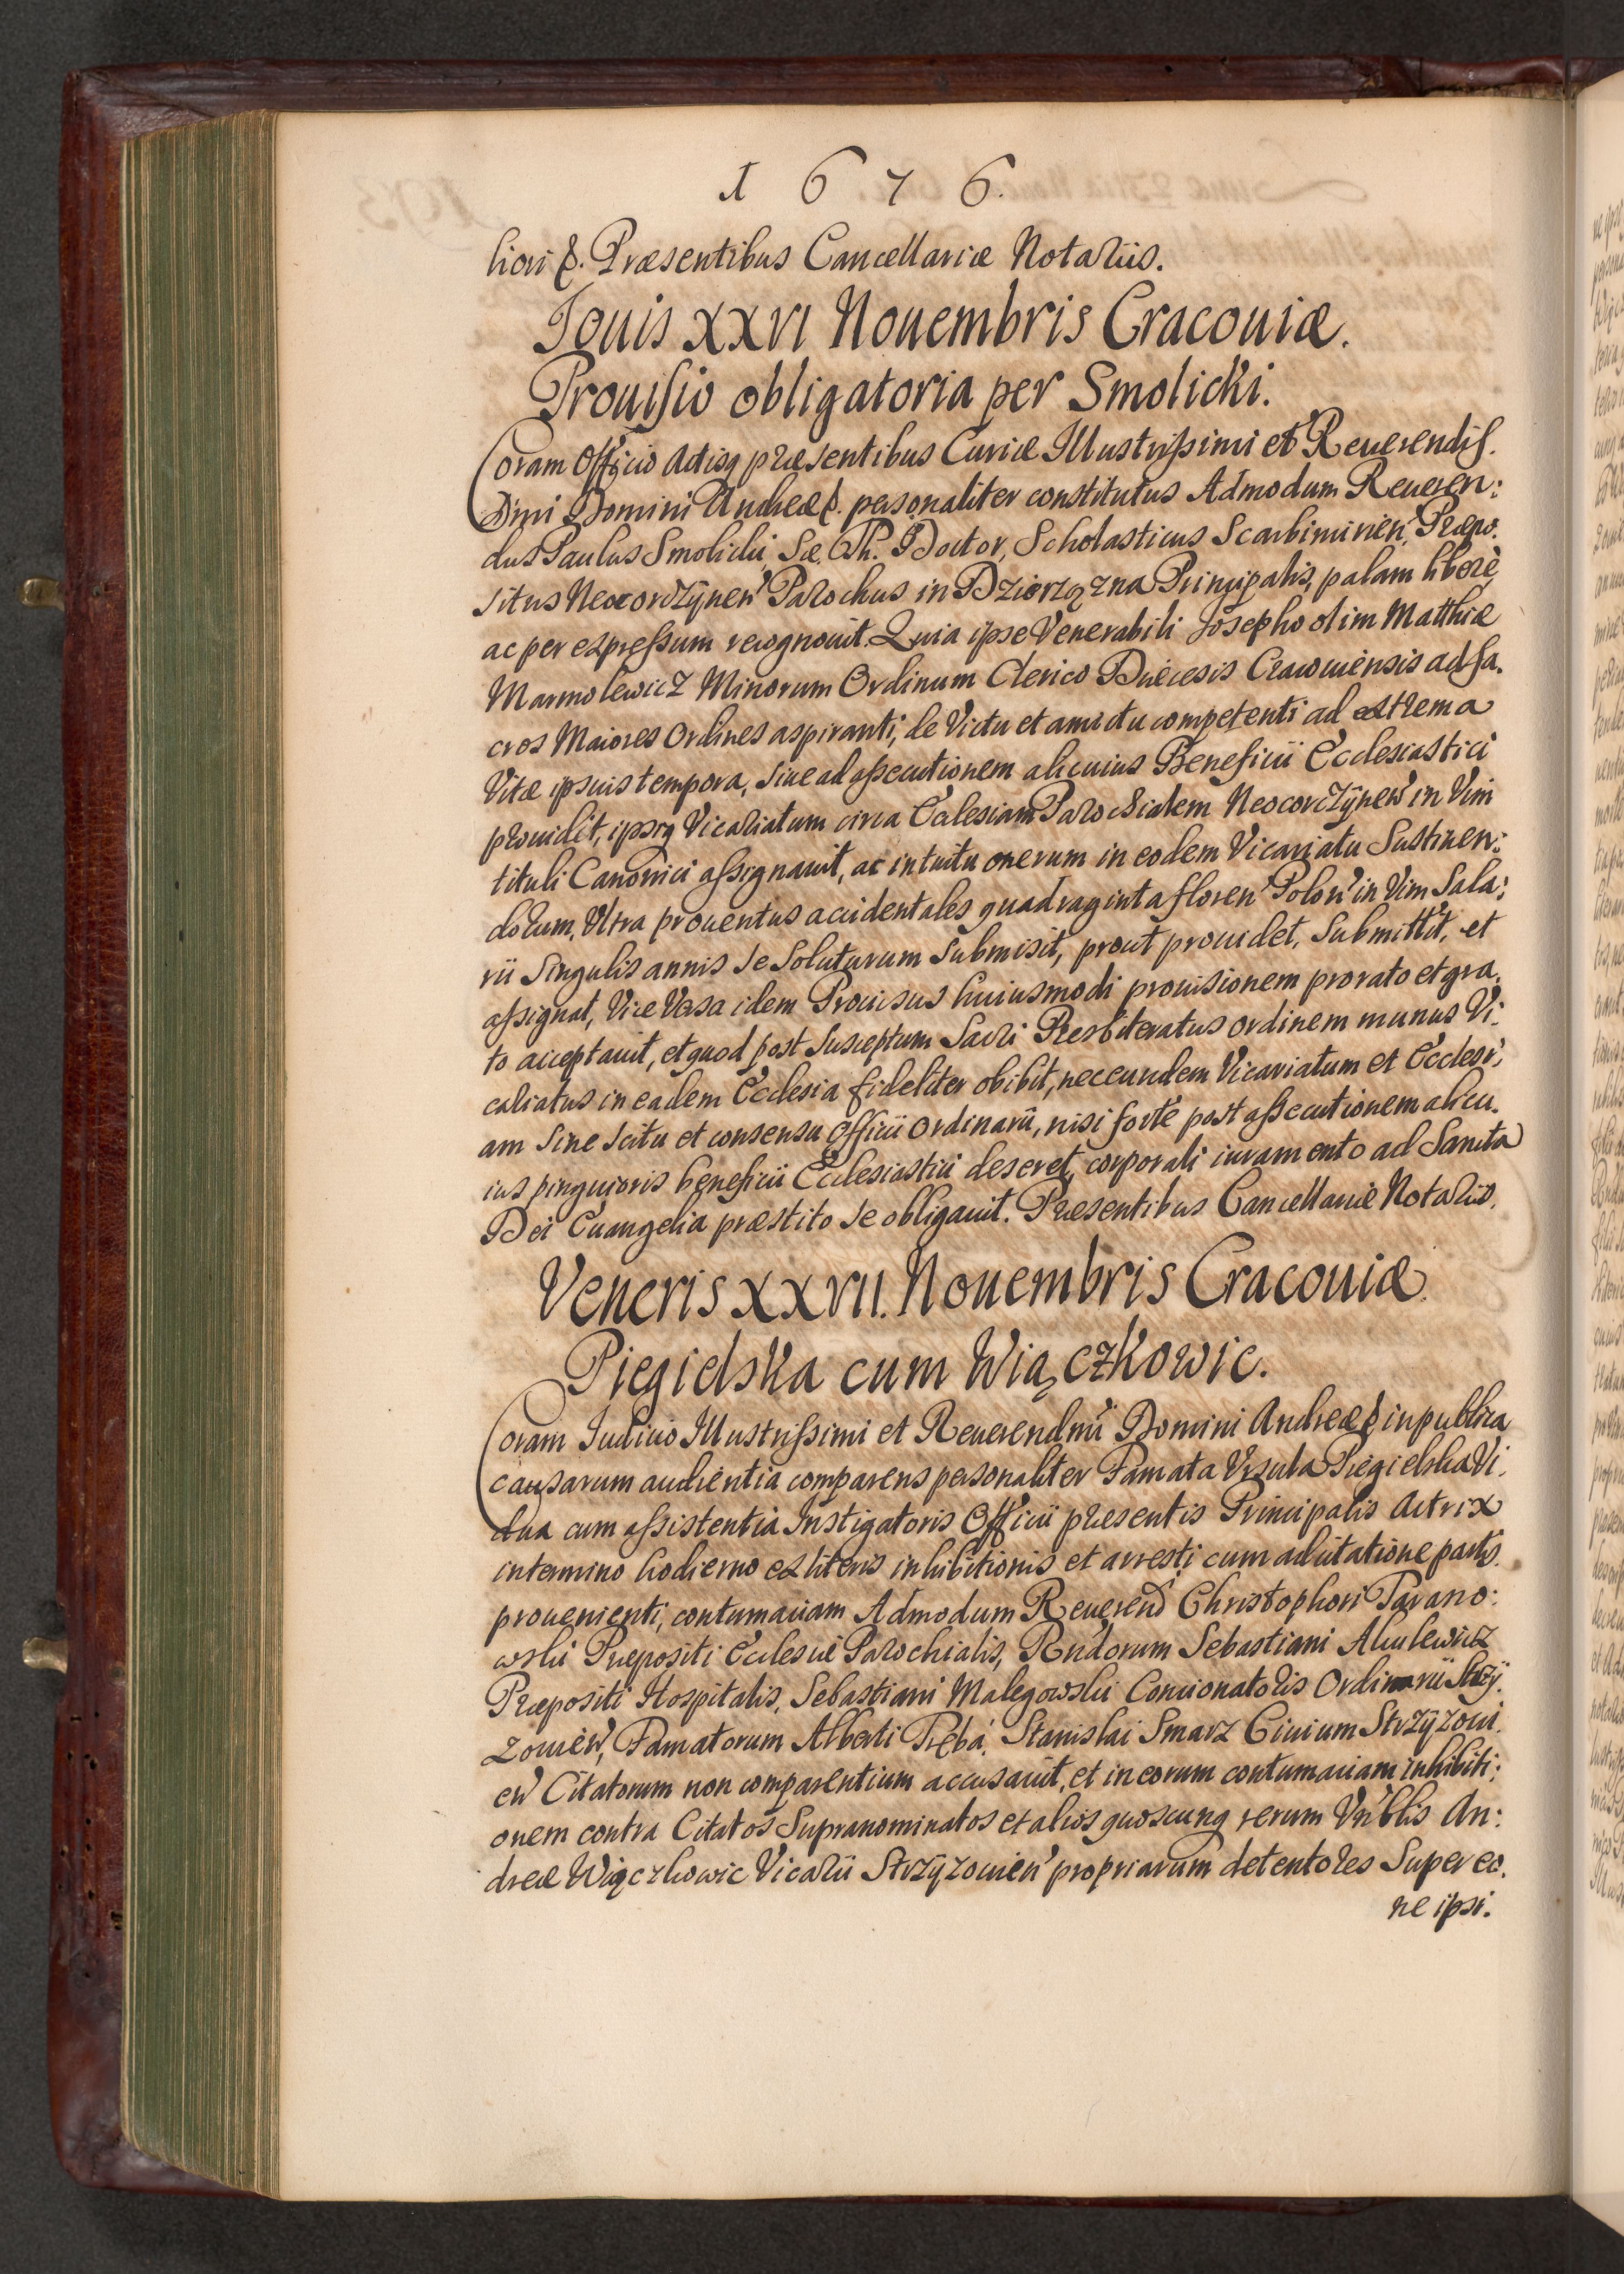 1676.
liori &. Præsentibus Cancellariæ Notariis.
Iouis XXVI Nouembris Cracouiæ.
Prouisio obligatoria per Smolicki.
Coram Officio Actisq præsentibus Curiæ Illustrissimi et Reuerendis.
Dmi Domini Andreæ &. personaliter constitutus Admodum Reueren:
dus Paulus Smolicki, Sæ. Th. Doctor, Scholasticus Scarbimirien, Præpo.
situs Neocorczÿnen Parochus in Dziorzązna Principalis, palam liberè
ac per expressum recognouit. Quia ipse Venerabili Iosepho olim Matthiæ
Marmolewicz Minorum Ordinum Clerico Diæcesis Cracouiensis ad sa.
cros Maiores Ordines aspiranti, de Victu et amictu competenti ad extrema
Vitæ ipsius tempora, siue ad assecutionem alicuius Beneficii Ecclesiastici
prouidit, ipsiq Vicariatum circa Ecclesiam Parochialem Neocorczÿnen in Vim
tituli Canonici assignauit, ac intuitu onerum in eodem Vicariatu Sustinen:
dorum, Ultra prouentus accidentales quadraginta floren Polon in Vim Sala:
rii Singulis annis se Soluturum Submisit, prout prouidet, Submittit, et
assignat, Vice Versa idem Prouisus huiusmodi prouisionem pro rato et gra.
to acceptauit, et quod post Susceptum Sacri Presbiteratus ordinem munus Vi:
cariatus in eadem Ecclesia fideliter obibit, nec eundem Vicariatum et Ecclesi:
am Sine Scitu et consensu Officii Ordinarii, nisi fortè post assecutionem alicu.
ius pinguioris beneficii Ecclesiastici deseret, corporali iuramento ad Sancta
Dei Euangelia præstito se obligauit. Præsentibus Cancellariæ Notariis.
Veneris XXVII. Nouembris Cracouiæ.
Piegielska cum Wiączkowic.
Coram Iudicio Illustrissimi et Reuerendmi Domini Andreæ & in publica
causarum audientia comparens personaliter Famata Vrsula Piegielska Vi.
dua cum assistentia Instigatoris Officii præsentis Principalis Actrix
in termino hodierno ex literis inhibitionis et arresti cum adcitatione partis
prouenienti, contumaciam Admodum Reuerend Christophori Tarano:
wski Præpositi Ecclesiæ Parochialis, Rndorum Sebastiani Akulewicz
Præpositi Hospitalis, Sebastiani Malegowski Concionatoris Ordinarii Strzÿ.
zouien, Famatorum Alberti Tręba, Stanislai Smarz Ciuium Strzÿzoui.
en Citatorum non comparentium accusauit, et in eorum contumaciam inhibiti:
onem contra Citatos Supranominatos et alios quoscunq rerum Vnblis An:
dreæ Wiączkowic Vicarii Strzÿzouien propriarum detentores Super eo.
ne ipsi.